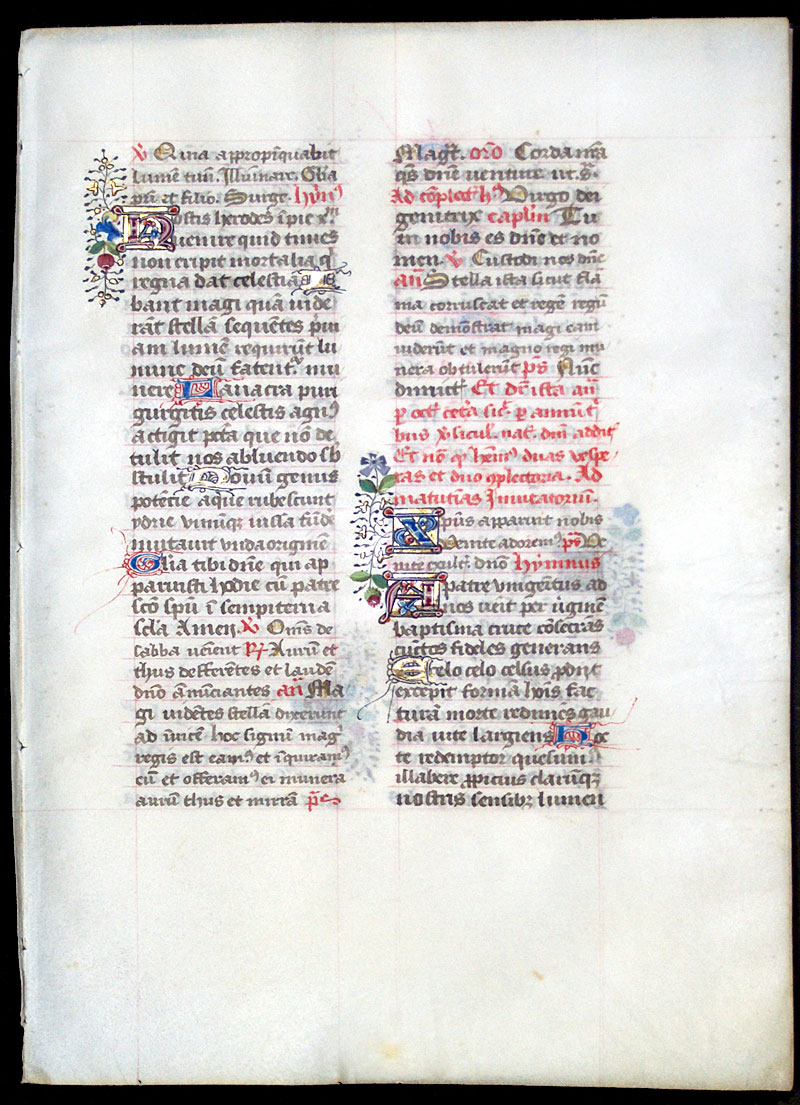 ℣ Quia appropinquabit
lumē tuū. Illuminare. Glia
pr̄i et filio. Surge. hymꝰ
Hostis herodes īpie xr̄m
uenire quid times
non eripit mortalia q̇
regna dat celestia I
bant magi quā uide
rāt stellā sequētes p̄ui
am lumē requirūt lu
mine deū fatentꝰ mu
nere Lauacra puri
gurgitis celestis agnꝰ
actigit pctā que nō de
tulit nos abluendo sb
stulit Noui genus
potēcie aque rubescunt
ydrie vinūqꝫ iussa fūdē
mutauit vnda originē
Glia tibi dn̄e qui ap
paruisti hodie cū patre
sc̄o spū ī sempiterna
scl̄a Amen. ℣ Om̄s de
sabba uēient ℟ Aurū et
thus defferētes et laudē
dn̄o ānuciantes an̄ Ma
gi vidētes stellā dixerunt
ad īuicē hoc signū maḡ
regis est eamꝰ et īquiramꝰ
eū et offeramꝰ ei munera
aurū thus et mirrā ps̄
Maḡt. or̄o Corda n̄ra
qs̄ dn̄e venture ut s̄.
Ad cōplect̄ hꝰ Virgo dei
genitrix caplm̄ Tu
in nobis es dn̄e et no
men. ℣ Custodi nos dn̄e
an̄ Stella ista sicut fla
ma corruscat et regē regū
deū demōstrat magi eam
uiderūt et magno regi mu
nera obtulerūt ps̄ Nūc
dimict̄ Et dr̄ ista an̄
p oct̄ cetā sic̄ p ānūt
bus ℣sicul. nat̄. dn̄i addit̄
Et nō q̇ hēmꝰ duas vespe
ras et duo ꝯplectoria. Ad
matutias Inuitatoriū.
Xp̄us apparuit nobis
Uenite adoremꝰ ps̄ Ue
nite exult̄. dn̄o Hymnus
A patre vnigenitus ad
nos ueit per uiginē
baptisma cruce cōsecrās
cūctos fideles generans
De celo celo celsus prodijt
excepit formā hōis fac
turā morte redimēs gau
dia uite largiens Hoc
te redemptor quesum.
illabere ꝓpicius clarūqꝫ
nostris sensibꝫ lumen